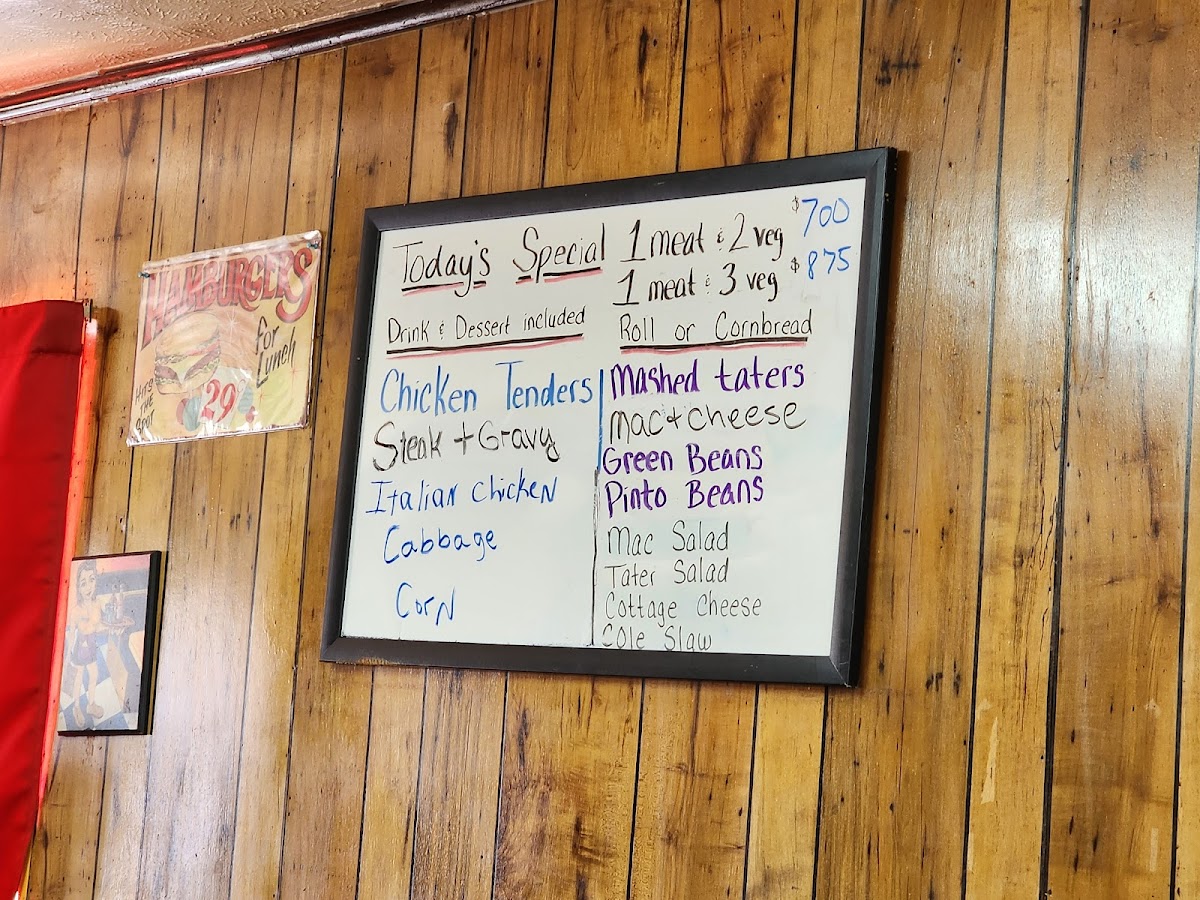 HAMBURGERS
For
Lunch
HITS
THE
SPOT
29
Today's Special
Drink & Dessert included
1 meat & 2 veg $700
1 meat & 3 veg $875
Roll or Cornbread
Chicken Tenders
Steak + Gravy
Italian Chicken
Cabbage
Corn
Mashed taters
Mac + Cheese
Green Beans
Pinto Beans
Mac Salad
Tater Salad
Cottage Cheese
Cole Slaw